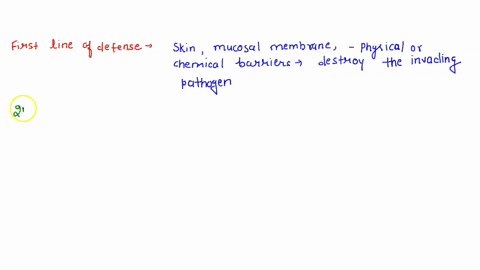 First line of defense → Skin, mucosal membrane, - Physical or
chemical barriers → destroy the invading
pathogen
2